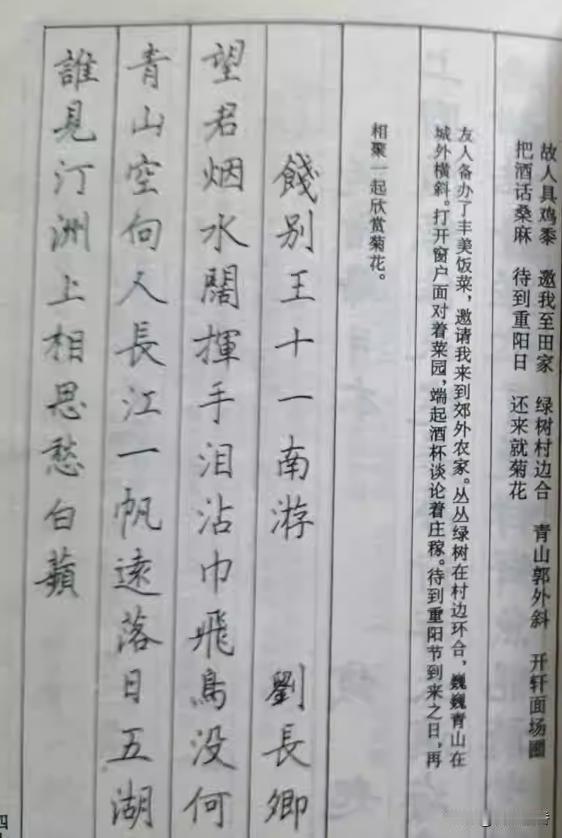 故人具鸡黍 邀我至田家 绿树村边合 青山郭外斜 开轩面场圃
把酒话桑麻 待到重阳日 还来就菊花
友人备办了丰美饭菜，邀请我来到郊外农家。丛丛绿树在村边环合，巍巍青山在
城外横斜。打开窗户面对着菜园，端起酒杯谈论着庄稼。待到重阳节到来之日，再
相聚一起欣赏菊花。
餞别王十一南游 劉長卿
望君烟水闊揮手泪沾巾飛鳥没何
青山空向人長江一帆遠落日五湖
誰見汀洲上相思愁白蘋
四